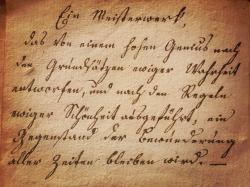 Ein Meisterwerk,
das von einem hohen Genius nach
den Grundsätzen ewiger Wahrheit
entworfen, und nach den Regeln
ewiger Schönheit ausgeführt, ein
Gegenstand der Bewunderung
aller Zeiten bleiben wird. —